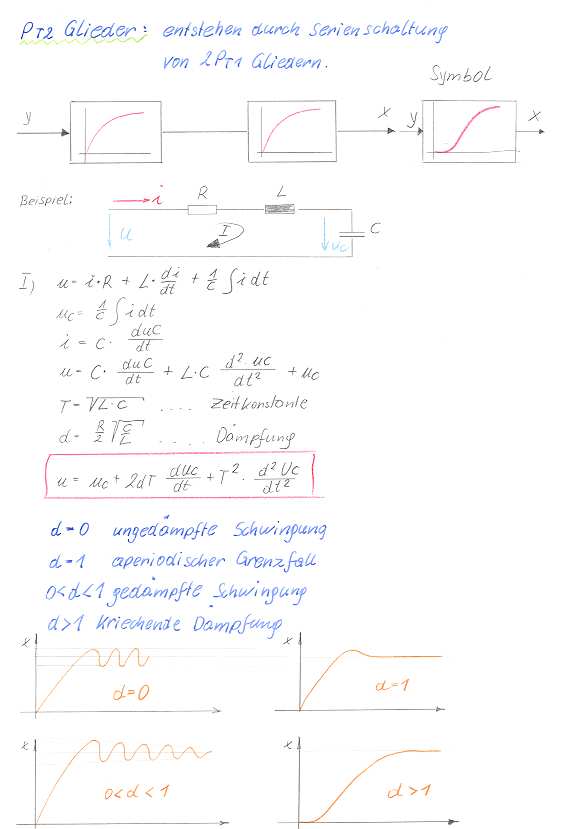 PT2 Glieder: entstehen durch Serienschaltung
von 2PT1 Gliedern.
Symbol
y x y x
Beispiel: i R L
u I uc C
I) u = i•R + L• di/dt + 1/C ∫ i dt
uc = 1/C ∫ i dt
i = C · duC/dt
u = C· duC/dt + L·C d² uc/dt² + uc
T = √L·C .... Zeitkonstante
d = R/2 √C/L .... Dämpfung
u = uc + 2dT duc/dt + T² · d²Uc/dt²
d=0 ungedämpfte Schwingung
d=1 aperiodischer Grenzfall
0<d<1 gedämpfte Schwingung
d>1 Kriechende Dämpfung
x x
d=0 d=1
x x
0<d<1 d>1